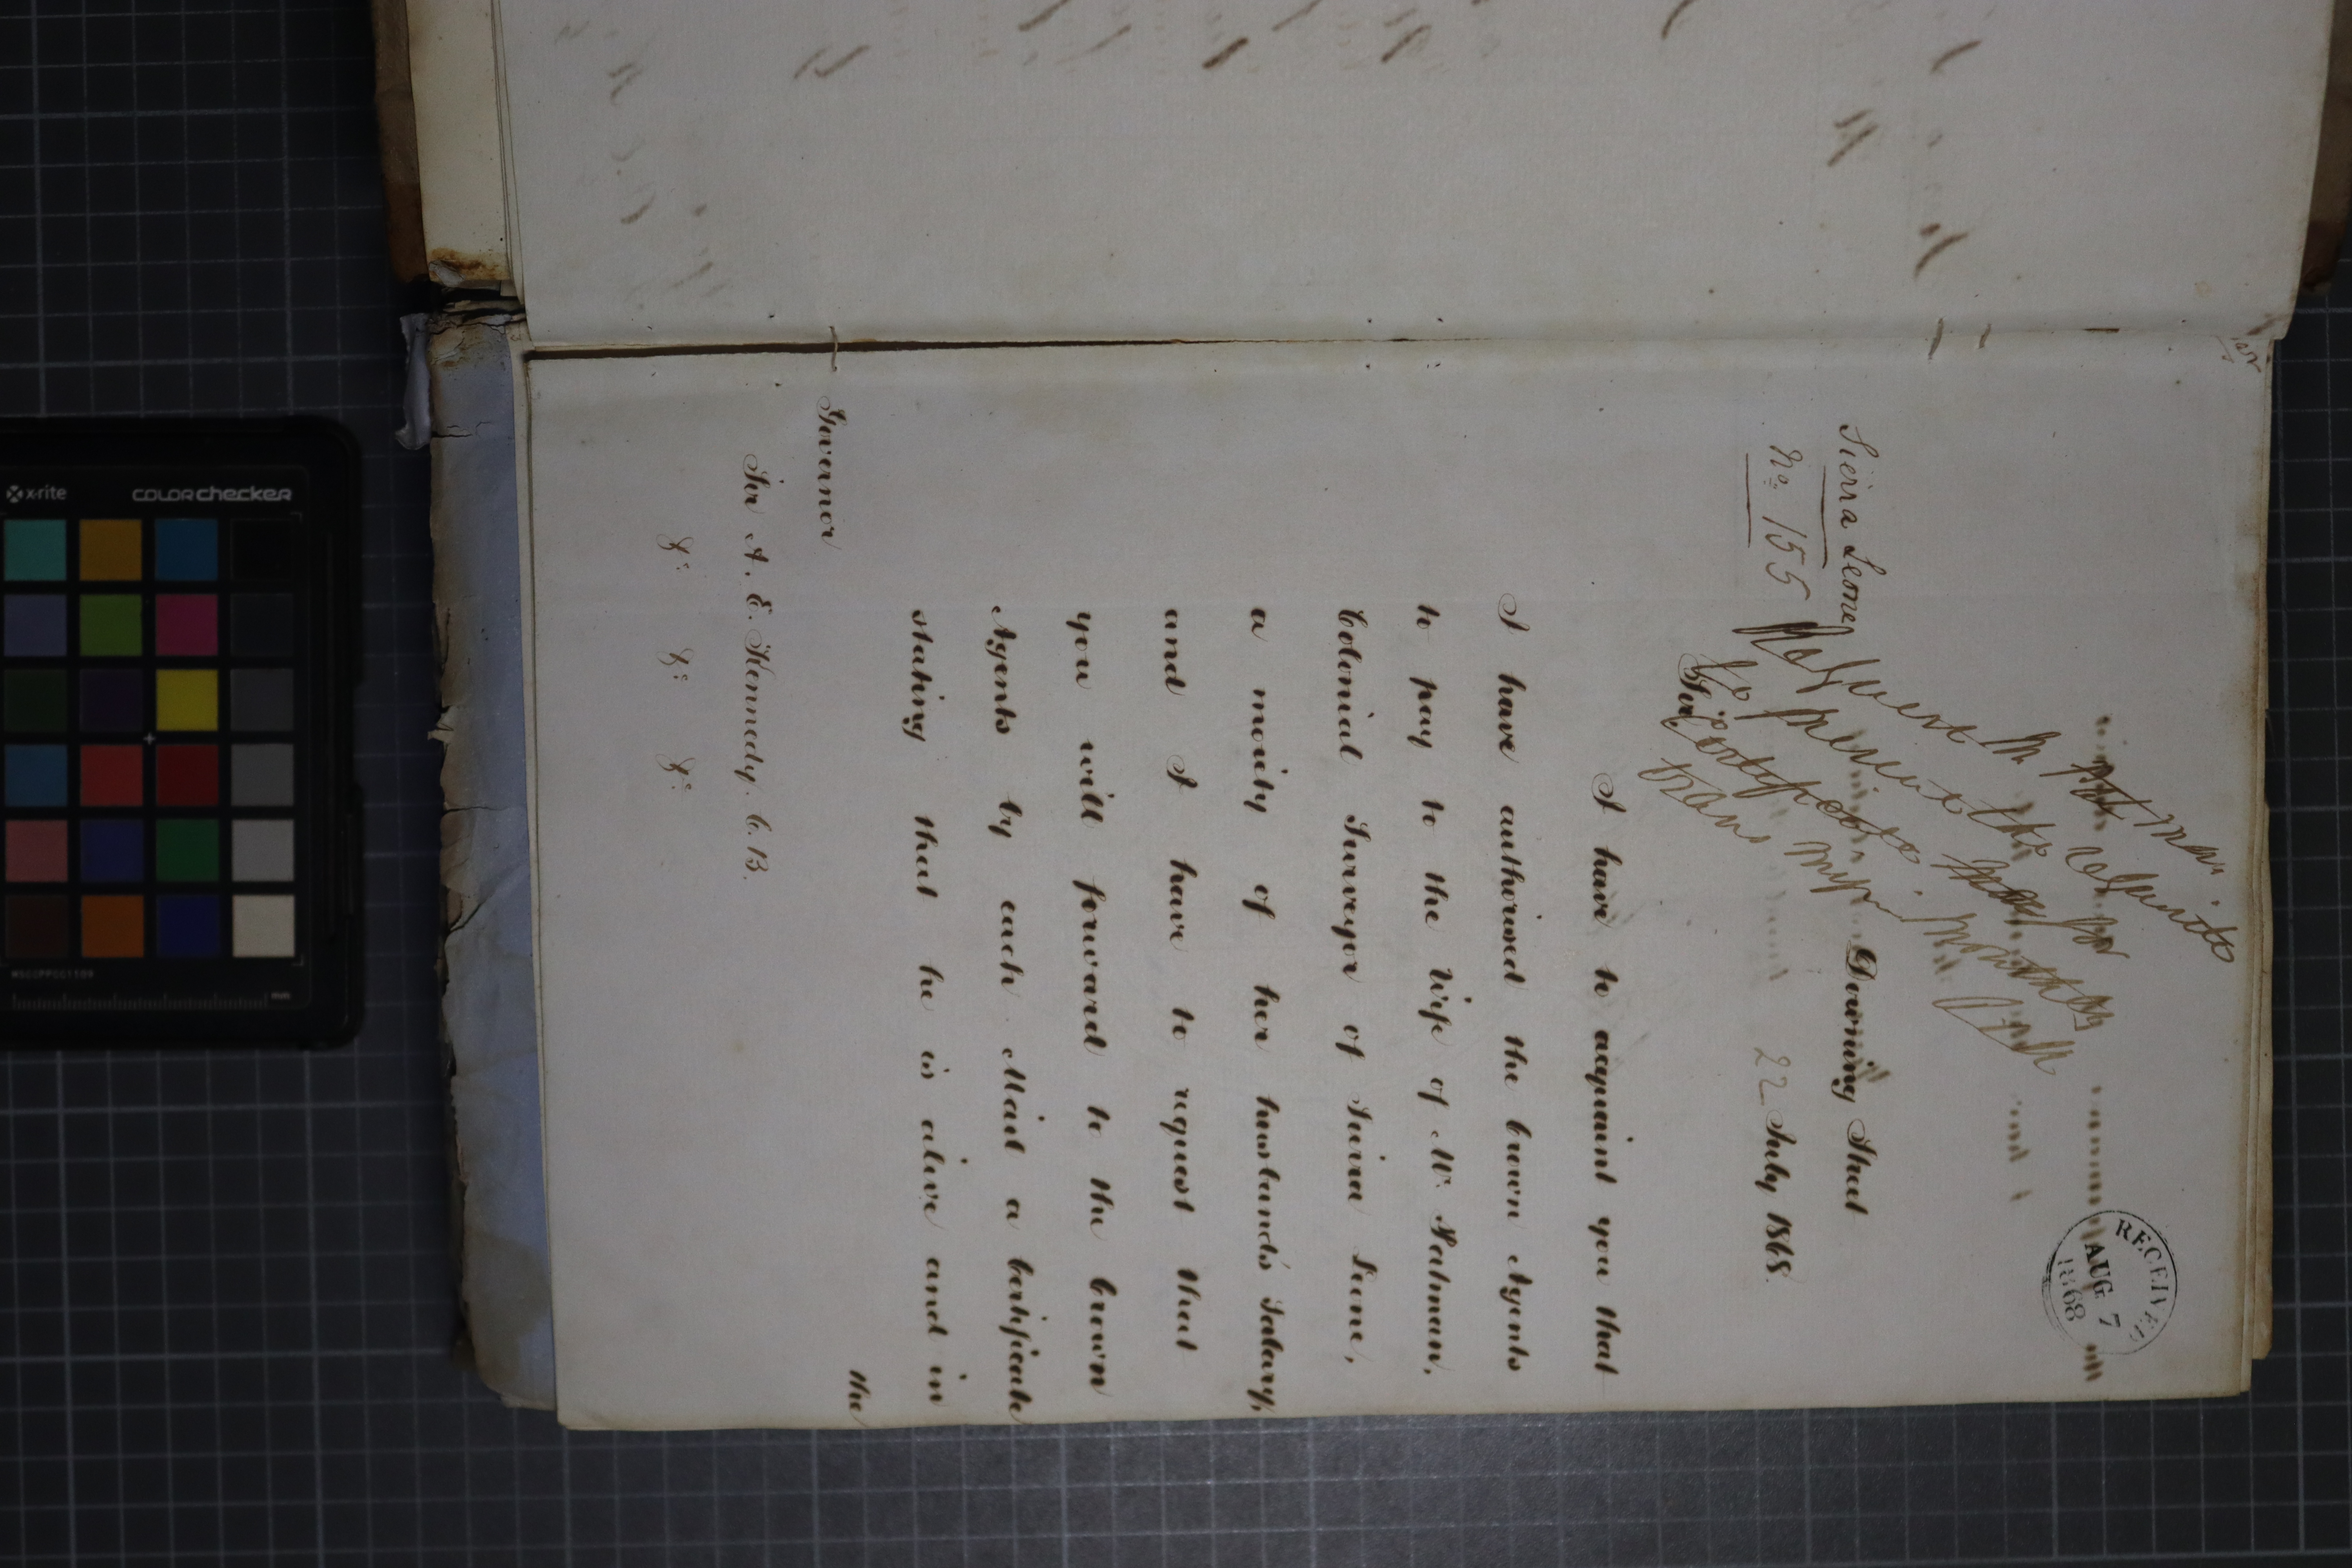 Sierra Leone
No. 155
Downing Street
22 July 1868.
RECEIVED
AUG 7
1868
Request Mr
to the requisite
Certificate for
Sir,
I have to acquaint you that
I have authorised the Crown Agents
to pay to the Wife of Mr. Patman,
Colonial Surveyor of Sierra Leone,
a moiety of her husband's Salary,
and I have to request that
you will forward to the Crown
Agents by each Mail a Certificate
stating that he is alive and in
the
Governor
Sir A. E. Kennedy. C.B.
&c. &c. &c.
x-rite
colorchecker
mm